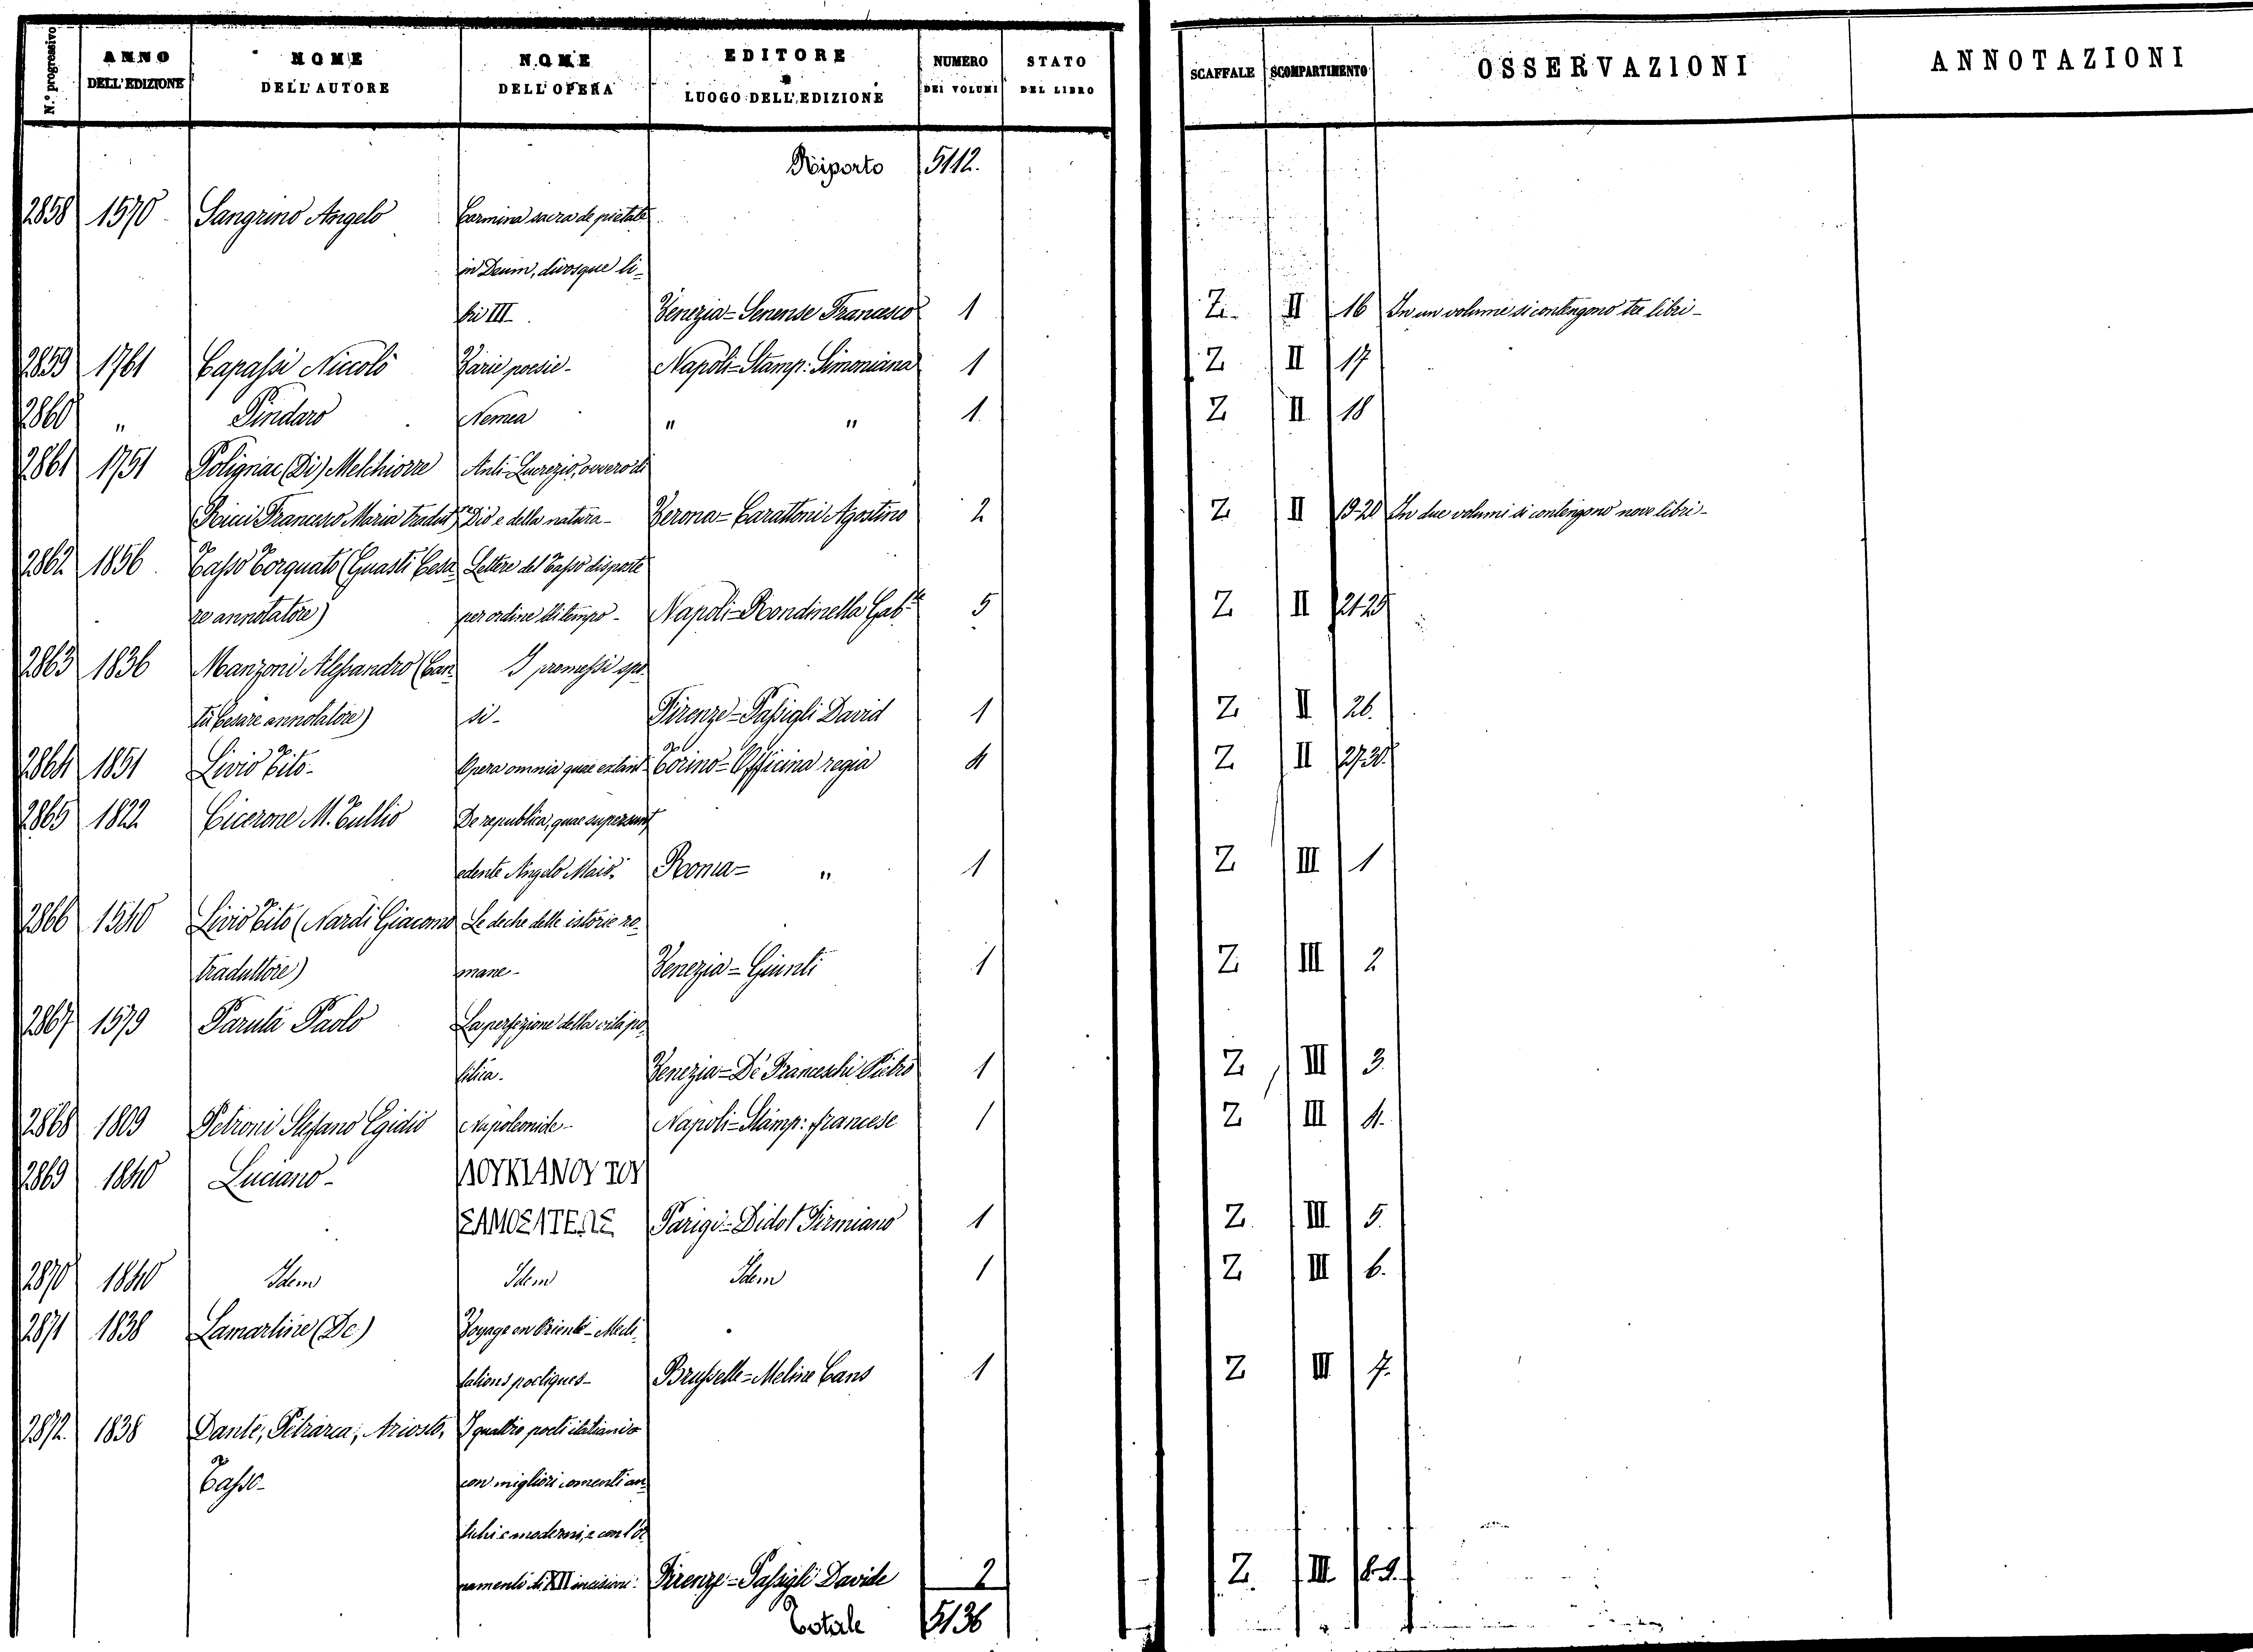 N.º progressivo | ANNO DELL'EDIZIONE | NOME DELL'AUTORE | NOME DELL'OPERA | EDITORE e LUOGO DELL'EDIZIONE | NUMERO DEI VOLUMI | STATO DEL LIBRO | SCAFFALE | SCOMPARTIMENTO | OSSERVAZIONI | ANNOTAZIONI
Riporto 5112.
2858 1570 Sangrino Angelo Carmina sacra de pietate
in Deum, divosque li-
bri III. Venezia = Senense Francesco 1 Z. II 16 In un volume si contengono tre libri -
2859 1761 Capassi Niccolò Varie poesie - Napoli = Stamp: Simoniana 1 Z II 17
2860 " Pindaro Nemea " " 1 Z II 18
2861 1751 Polignac (Di) Melchiorre Anti-Lucrezio, ovvero di
(Ricci Francesco Maria tradutre) Dio e della natura - Verona = Carattoni Agostino 2 Z II 19-20 In due volumi si contengono nove libri -
2862 1856 Tasso Torquato (Guasti Cesa- Lettere del Tasso disposte
re annotatore) per ordine di tempo - Napoli = Rondinella Gab.le 5 Z II 21-25
2863 1836 Manzoni Alessandro (Can- I promessi spo-
tù Cesare annotatore) si - Firenze = Passigli David 1 Z II 26.
2864 1851 Livio Tito - Opera omnia quae extant - Torino = Officina regia 4 Z II 27-30.
2865 1822 Cicerone M. Tullio De republica, quae supersunt
edente Angelo Maio. Roma = " 1 Z III 1
2866 1540 Livio Tito (Nardi Giacomo Le deche delle istorie ro-
traduttore) mane - Venezia = Giunti 1 Z III 2
2867 1579 Paruta Paolo La perfezione della vita po-
litica. Venezia = De' Franceschi Pietro 1 Z III 3.
2868 1809 Petroni Stefano Egidio Napoleonide - Napoli = Stamp: francese 1 Z III 4.
2869 1840 Luciano - ΛΟΥΚΙΑΝΟΥ ΤΟΥ
ΣΑΜΟΣΑΤΕΩΣ Parigi = Didot Firmiano 1 Z III 5.
2870 1840 Idem Idem Idem 1 Z III 6.
2871 1838 Lamartine (De) Voyage en Orient - Medi-
tations poetiques - Brusselle = Meline Cans 1 Z III 7.
2872. 1838 Dante, Petrarca, Ariosto, I quattro poeti italiani
Tasso - con migliori comenti an-
tichi e moderni, e con l'or-
namenti di XII incisioni. Firenze = Passigli Davide 2 Z. III 8-9.
Totale 5136